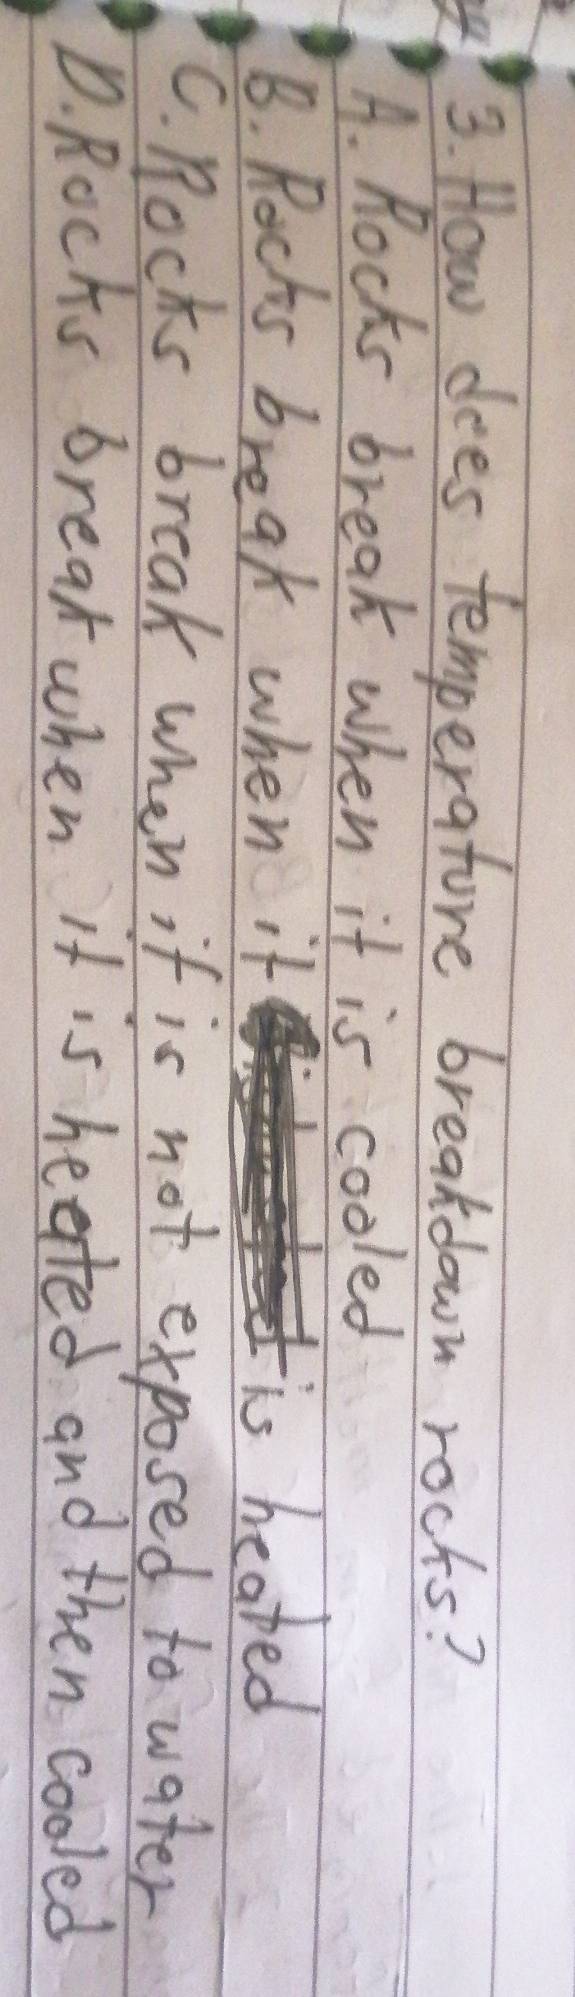 3. How does temperature breakdown rocks?
A. Rocks break when it is cooled
B. Rocks break when it is heated
C. Rocks break when it is not exposed to water
D. Rocks break when it is heated and then cooled